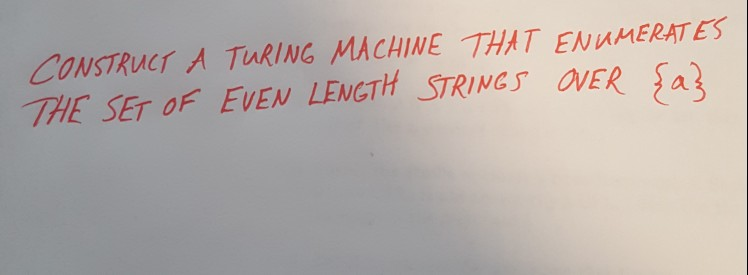 CONSTRUCT A TURING MACHINE THAT ENUMERATES
THE SET OF EVEN LENGTH STRINGS OVER {a}